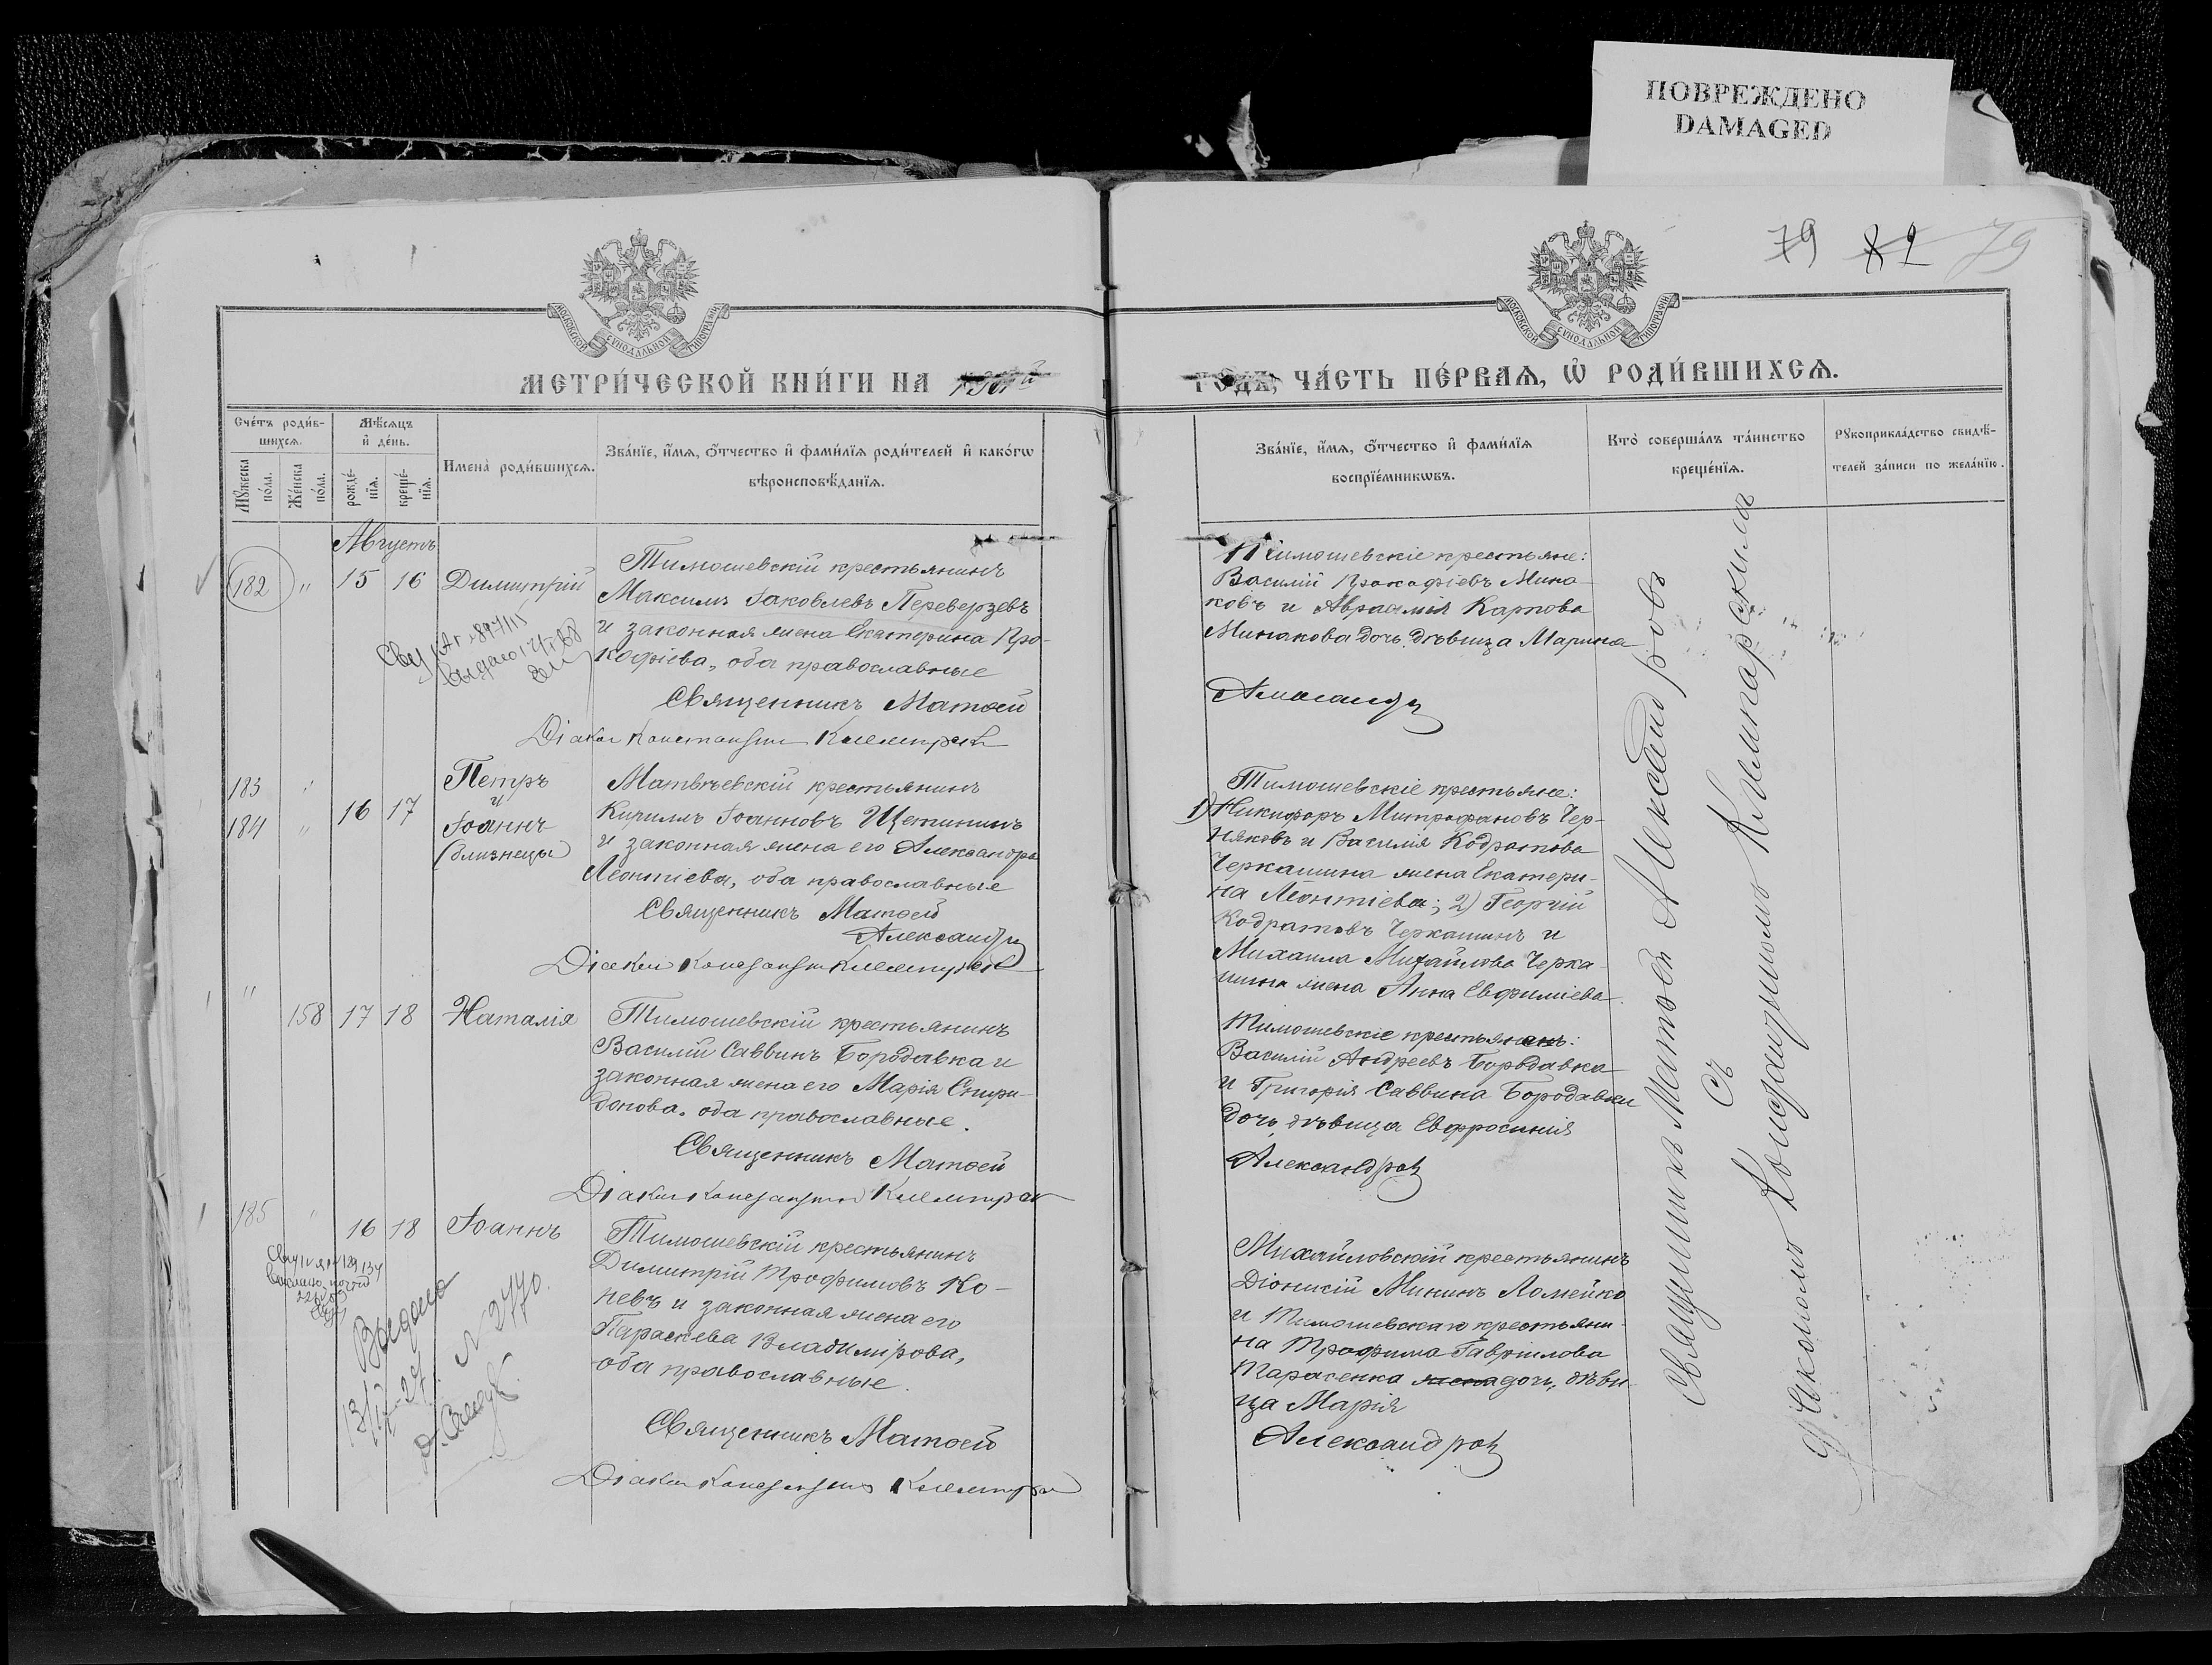 ПОВРЕЖДЕНО
DAMAGED
79 82 79
МОСКОВСКОЙ СѴНОДАЛЬНОЙ ТИПОГРАФІИ
МОСКОВСКОЙ СѴНОДАЛЬНОЙ ТИПОГРАФІИ
МЕТРИ́ЧЕСКОЙ КНИ́ГИ НА
ГОДЪ, ЧА́СТЬ ПЕ́РВАѦ, Ѡ҆ РОДИ́ВШИХСѦ.
Сче́тъ роди́в-
шихсѧ.
Мѣ́сѧцъ
и҆ де́нь.
Мꙋ́жеска по́ла.
Же́нска по́ла.
рожде́-
нїѧ.
креще́-
нїѧ.
Имена̀ роди́вшихсѧ.
Зва́нїе, и҆́мѧ, ѻ҆́тчество и҆ фами́лїѧ роди́телей и҆ како́гѡ
вѣроисповѣ́данїѧ.
Зва́нїе, и҆́мѧ, ѻ҆́тчество и҆ фами́лїѧ
воспрїе́мникѡвъ.
Кто̀ соверша́лъ та́инство
креще́нїѧ.
Рꙋкоприкла́дство свидѣ́-
телей за́писи по жела́нїю.
Августъ
182 " 15 16 Димитрій
Тимошевскій крестьянинъ
Максимъ Іаковлевъ Переверзевъ
и законная жена Екатерина Про-
кофіева, оба православные
Священникъ Матѳей
Діакон Константин
Тимошевскіе крестьяне:
Василій Прокофіевъ Мина-
ковъ и Авраамія Карпова
Минакова дочь дѣвица Марина
Александр
183 "
184 "
16 17
Петръ
и
Іоаннъ
(близнецы)
Матвѣевскій крестьянинъ
Кириллъ Іоанновъ Щетининъ
и законная жена его Александра
Леонтіева, оба православные
Священникъ Матѳей
Александр
Діакон Константин
Тимошевскіе крестьяне:
1) Никифоръ Митрофановъ Чер-
няковъ и Василія Кодратова
Черкашина жена Екатери-
на Леонтіева; 2) Георгій
Кодратовъ Черкашинъ и
Михаила Михайлова Черка-
шина жена Анна Евфиміева
" 158 17 18 Наталія
Тимошевскій крестьянинъ
Василій Саввинъ Бородавка и
законная жена его Марія Спири-
донова. оба православные.
Священникъ Матѳей
Діакон Константин
Тимошевскіе крестьяне:
Василій Андреевъ Бородавка
и Григорія Саввина Бородавки
дочь дѣвица Евфросинія
Александров
185 " 16 18 Іоаннъ
Тимошевскій крестьянинъ
Димитрій Трофимовъ Ко-
невъ и законная жена его
Параскева Владимірова,
оба православные.
Священникъ Матѳей
Діакон Константин
Михайловскій крестьянинъ
Діонисій Мининъ Ломейко
и Тимошевскаго крестьяни-
на Трофима Гавріилова
Тарасенка жена дочь, дѣви-
ца Марія
Александров
Выдано
№ 2770.
Священникъ Матѳей Александровъ
съ
Діакономъ Константиномъ